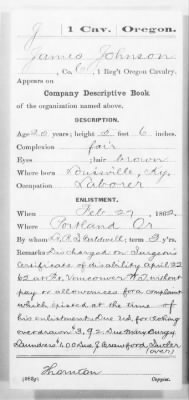 J | 1 Cav. | Oregon.
James Johnson
, Co. C, 1 Reg't Oregon Cavalry.
Appears on
Company Descriptive Book
of the organization named above.
DESCRIPTION.
Age 20 years; height 5 feet 6 inches.
Complexion fair
Eyes ; hair brown
Where born Louisville, Ky.
Occupation Laborer
ENLISTMENT.
When Feb 27, 1862.
Where Portland Or
By whom Caldwell; term 3 y'rs.
Remarks: Discharged on Surgeon's
Certificate of disability April 22
62 at Ft. Vancouver W.T. without
pay or allowances for a complaint
which existed at the time of
his enlistment. Due U.S. for clothing
overdrawn $3.92. Due Mary Burgy
Laundress $1.00 Due J. Crawford Sutler
(over)
Thornton
Copyist.